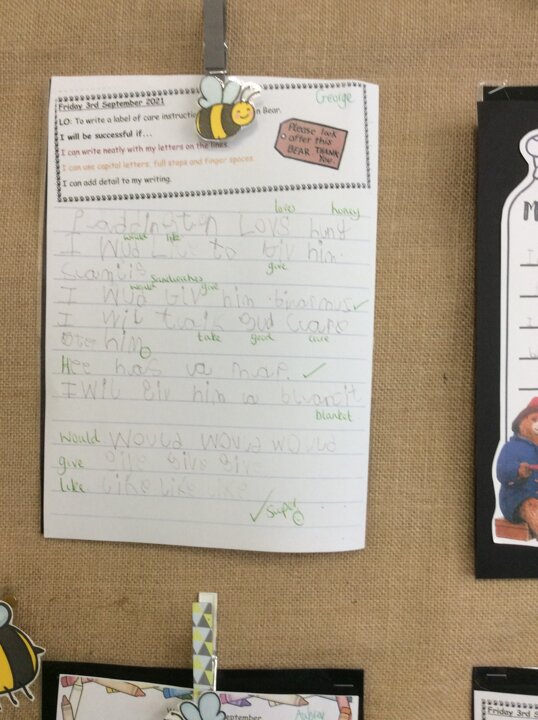 George
Friday 3rd September 2021
LO: To write a label of care instructi n Bear.
I will be successful if...
I can write neatly with my letters on the lines.
I can use capital letters, full stops and finger spaces.
I can add detail to my writing.
Please look
after this
BEAR THANK
You.
loves honey
Paddington Lovs huny
would like
I Wud Like to giv him
sandwiches give
would give
I Wud Giv him
I Wil
take good care
him
Hee has a
I Wil Giv him a
blanket
would Would Would Would
give give give give
like Like Like Like
✓ Super
September
Friday 3rd S